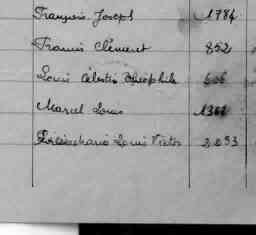 François Joseph 1784
Francis Clément 852
Louis Célestin Théophile
Marcel Louis
Louis Victor 2053